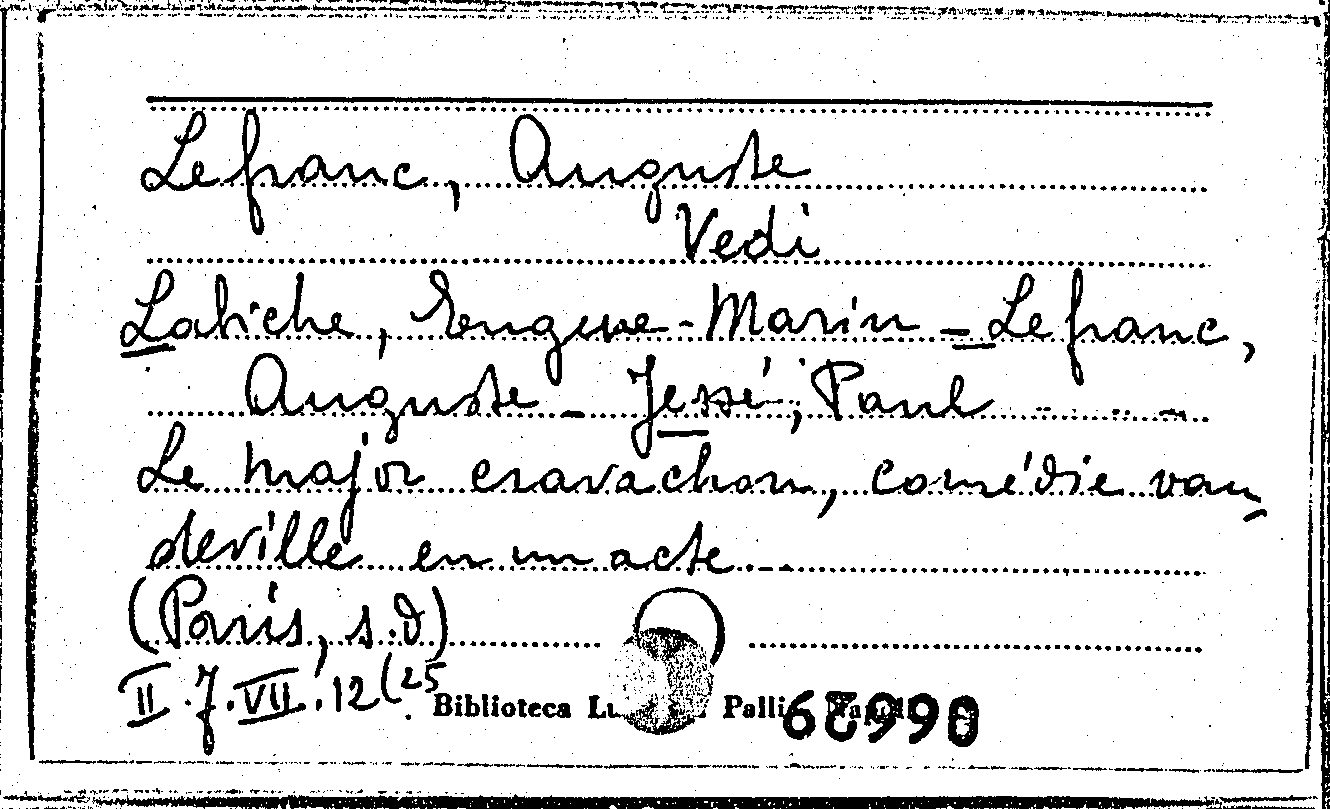 Lefranc, Auguste
Vedi
Labiche, Eugene-Marin - Lefranc,
Auguste - Jessé, Paul
Le major cravachon, comédie vau
deville en un acte
(Paris, s.d)
II.J.VII.12(25
Biblioteca Palli